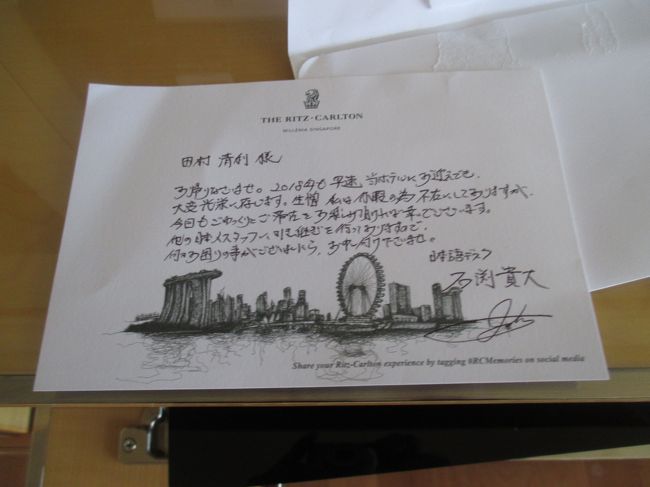 THE RITZ-CARLTON
MILLENIA SINGAPORE
田村 清利 様
お帰りなさいませ。2018年も早速、当ホテルにお迎えでき、
大変光栄に存じます。生憎 私は休暇の為 不在にしておりますが、
今回もごゆっくりとご滞在をお楽しみ頂ければ幸いでございます。
他の日本人スタッフへ引き継ぎを行っておりますので、
何かお困りの事がございましたら、お申し付け下さいませ。
日本語デスク
石渕 貴大
Share your Ritz-Carlton experience by tagging #RCMemories on social media